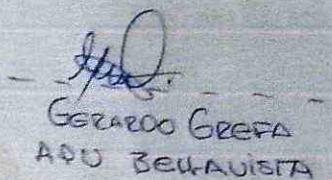 GERARDO GREFA
ADU BELLAVISTA